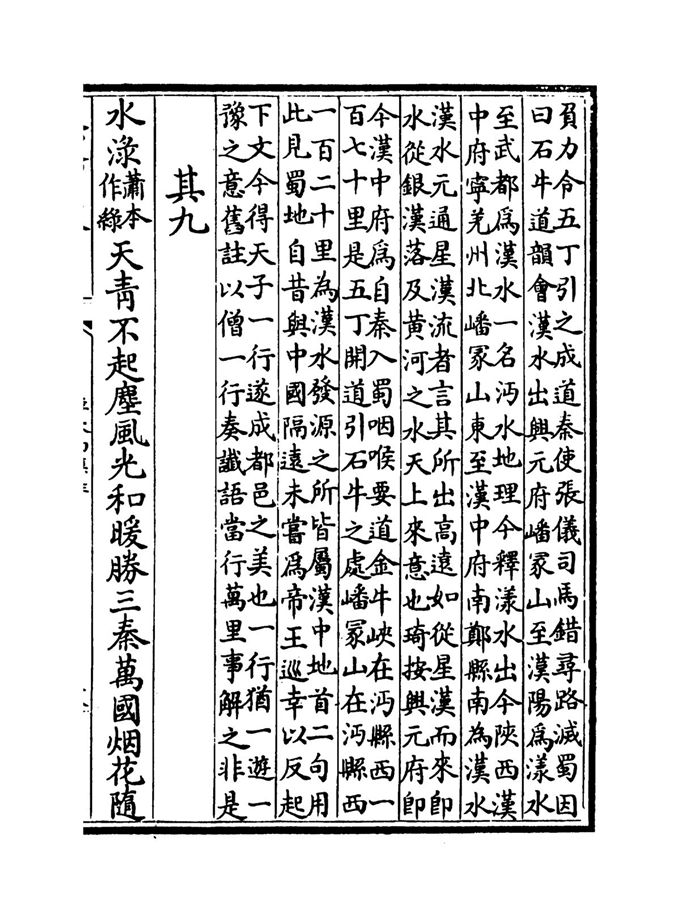 負力令五丁引之成道秦使張儀司馬錯尋路滅蜀因
曰石牛道韻會漢水出興元府嶓冢山至漢陽為漾水
至武都為漢水一名沔水地理今釋漾水出今陝西漢
中府寧羌州北嶓冢山東至漢中府南鄭縣南為漢水
漢水元通星漢流者言其所出高遠如從星漢而來即
水從銀漢落及黃河之水天上來意也琦按興元府即
今漢中府為自秦入蜀咽喉要道金牛峽在沔縣西一
百七十里是五丁開道引石牛之處嶓冢山在沔縣西
一百二十里為漢水發源之所皆屬漢中地首二句用
此見蜀地自昔與中國隔遠未嘗為帝王巡幸以反起
下文今得天子一行遂成都邑之美也一行猶一遊一
豫之意舊註以僧一行奏讖語當行萬里事解之非是
其九
水淥蕭本作綠天青不起塵風光和暖勝三秦萬國烟花隨